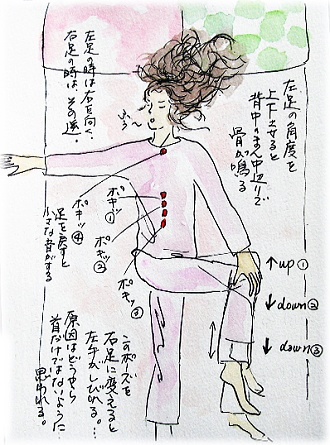 左足の時は右を向く、
右足の時は、その逆。
ふぅ〜
左足の角度を
上下させると
背中のまん中辺りで
骨が鳴る
ポキッ①
ポキッ②
ポキッ③
ポキッ④
足を戻すと
小さな音がする
↑up①
↓down②
↓down③
このポーズを
右足に変えると
左手がしびれる…
原因はどうやら
首だけではないように
思われる。